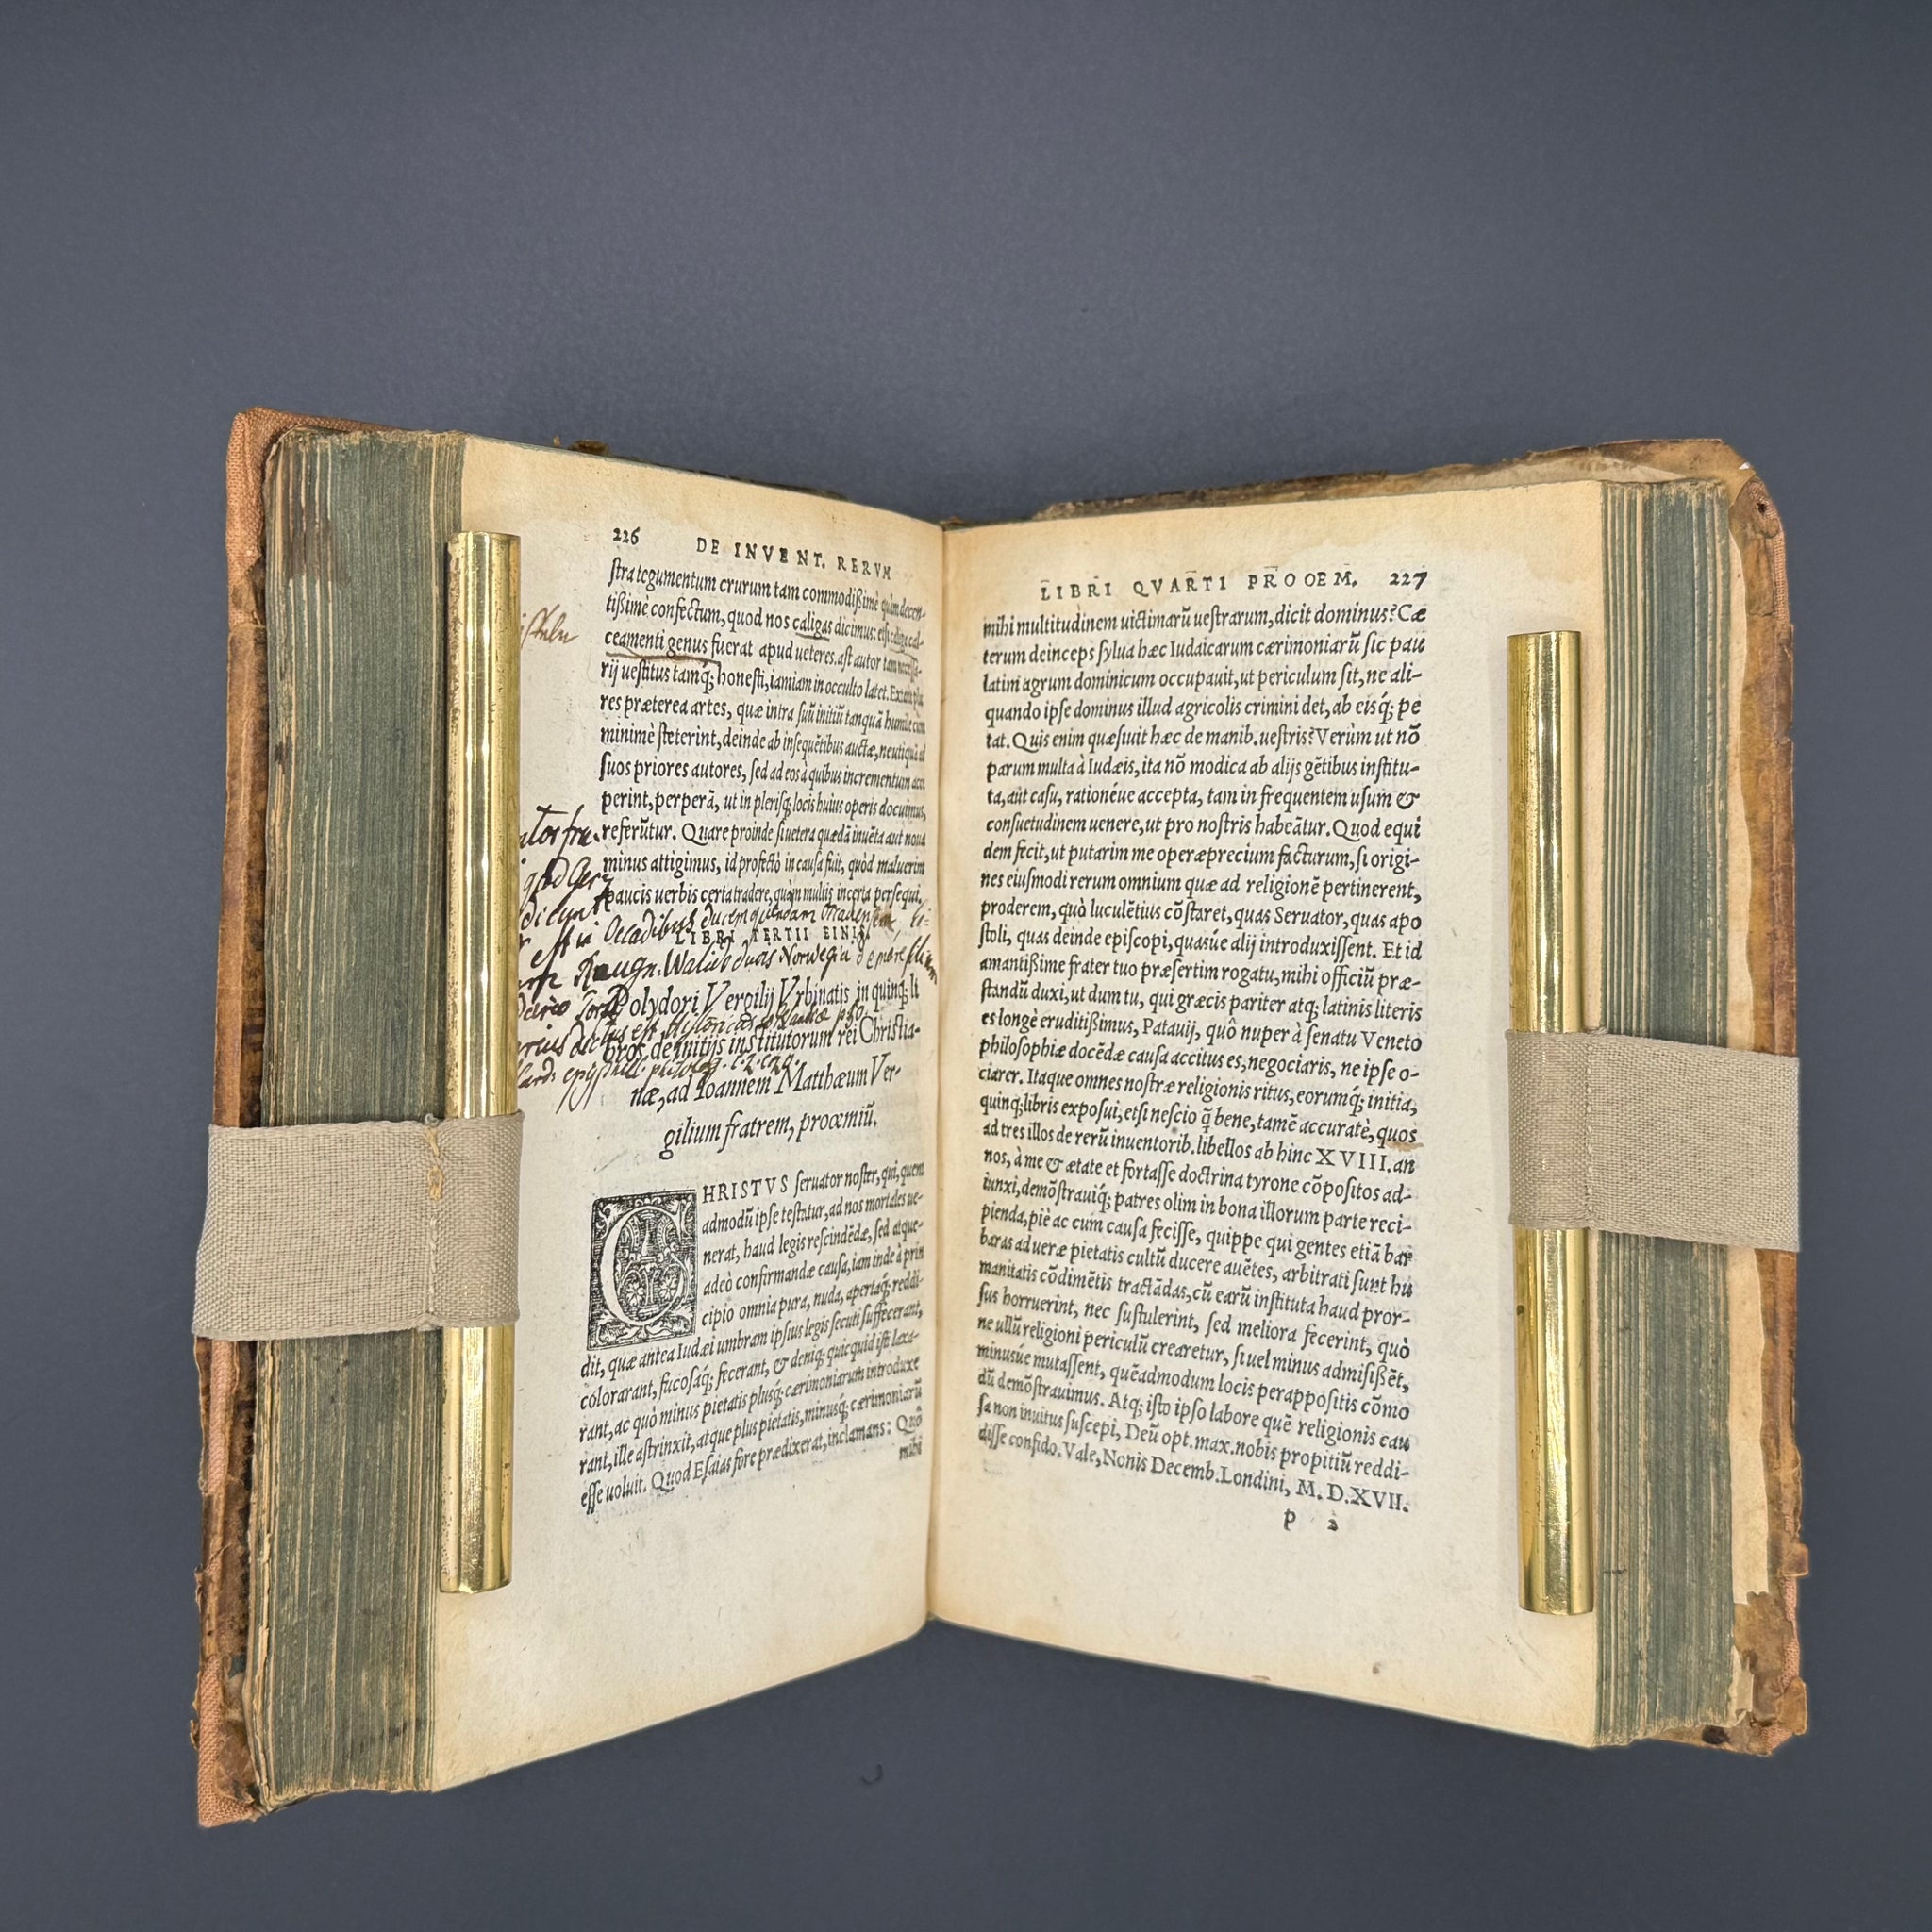 226 DE INVENT. RERVM
ſtra tegumentum crurum tam commodiſsimè quàm decen-
tiſsimè confectum, quod nos caligas dicimus: etſi caliga cal-
ceamenti genus fuerat apud ueteres. aſt autor tam neceſſa-
rij ueſtitus tamq́; honeſti, iamiam in occulto latet. Exemplares
res præterea artes, quæ intra ſuũ initiũ tanquã humile cùm
minimè ſteterint, deinde ab inſequẽtibus auctæ, neutiquã ad
ſuos priores autores, ſed ad eos à quibus incrementum acce
perint, perperã, ut in pleriſq; locis huius operis docuimus,
referũtur. Quare proinde ſi uetera quædã inuẽta aut noua
minus attigimus, id profectò in cauſa fuit, quòd maluerim
paucis uerbis certa tradere, quàm multis incerta perſequi.
LIBRI TERTII FINIS.
Polydori Vergilij Vrbinatis in quinq; li
bros de initijs inſtitutorum rei Chriſtia-
næ, ad Ioannem Matthæum Ver-
gilium fratrem, proœmiũ.
CHRISTVS ſeruator noſter, qui, quem
admodũ ipſe teſtatur, ad nos mortales ue-
nerat, haud legis reſcindẽdæ, ſed atque
adeò confirmandæ cauſa, iam inde à prin
cipio omnia pura, nuda, apertaq́; reddi-
dit, quæ antea Iudæi umbram ipſius legis ſecuti ſuffecerant,
colorarant, fucoſáq; fecerant, & deniq; quicquid iſti laxa-
rant, ac quò minus pietatis plusq́; cærimoniarum introduxe
rant, ille aſtrinxit, atque plus pietatis, minusq́; cærimoniarũ
eſſe uoluit. Quod Eſaias fore prædixerat, inclamans: Quò
mihi
LIBRI QVARTI PROOEM. 227
mihi multitudinem uictimarũ ueſtrarum, dicit dominus? Cæ
terum deinceps ſylua hæc Iudaicarum cærimoniarũ ſic pau
latim agrum dominicum occupauit, ut periculum ſit, ne ali-
quando ipſe dominus illud agricolis crimini det, ab eisq́; pe
tat. Quis enim quæſiuit hæc de manib. ueſtris? Verùm ut nõ
parum multa à Iudæis, ita nõ modica ab alijs gẽtibus inſtitu-
ta, aut caſu, rationéue accepta, tam in frequentem uſum &
conſuetudinem uenere, ut pro noſtris habeãtur. Quod equi
dem fecit, ut putarim me operæprecium facturum, ſi origi-
nes eiuſmodi rerum omnium quæ ad religionẽ pertinerent,
proderem, quò luculẽtius cõſtaret, quas Seruator, quas apo
ſtoli, quas deinde epiſcopi, quasúe alij introduxiſſent. Et id
amantiſsime frater tuo præſertim rogatu, mihi officiũ præ-
ſtandũ duxi, ut dum tu, qui græcis pariter atq; latinis literis
es longè eruditiſsimus, Patauij, quò nuper à ſenatu Veneto
philoſophiæ docẽdæ cauſa accitus es, negociaris, ne ipſe o-
ciarer. Itaque omnes noſtræ religionis ritus, eorumq́; initia,
quinq; libris expoſui, etſi neſcio q̃ bene, tamẽ accuratè, quos
ad tres illos de rerũ inuentorib. libellos ab hinc XVIII. an
nos, à me & ætate et fortaſſe doctrina tyrone cõpoſitos ad-
iunxi, demõſtrauiq́; patres olim in bona illorum parte reci-
pienda, piè ac cum cauſa feciſſe, quippe qui gentes etiã bar
baras ad ueræ pietatis cultũ ducere auẽtes, arbitrati ſunt hu
manitatis cõdimẽtis tractãdas, cũ earũ inſtituta haud pror-
ſus horruerint, nec ſuſtulerint, ſed meliora fecerint, quò
ne ullũ religioni periculũ crearetur, ſi uel minus admiſiſſẽt,
minusúe mutaſſent, quẽadmodum locis perappoſitis cõmo
dũ demõſtrauimus. Atq; iſto ipſo labore quẽ religionis cau
ſa non inuitus ſuſcepi, Deũ opt. max. nobis propitiũ reddi-
diſſe confido. Vale, Nonis Decemb. Londini, M. D. XVII.
p 2